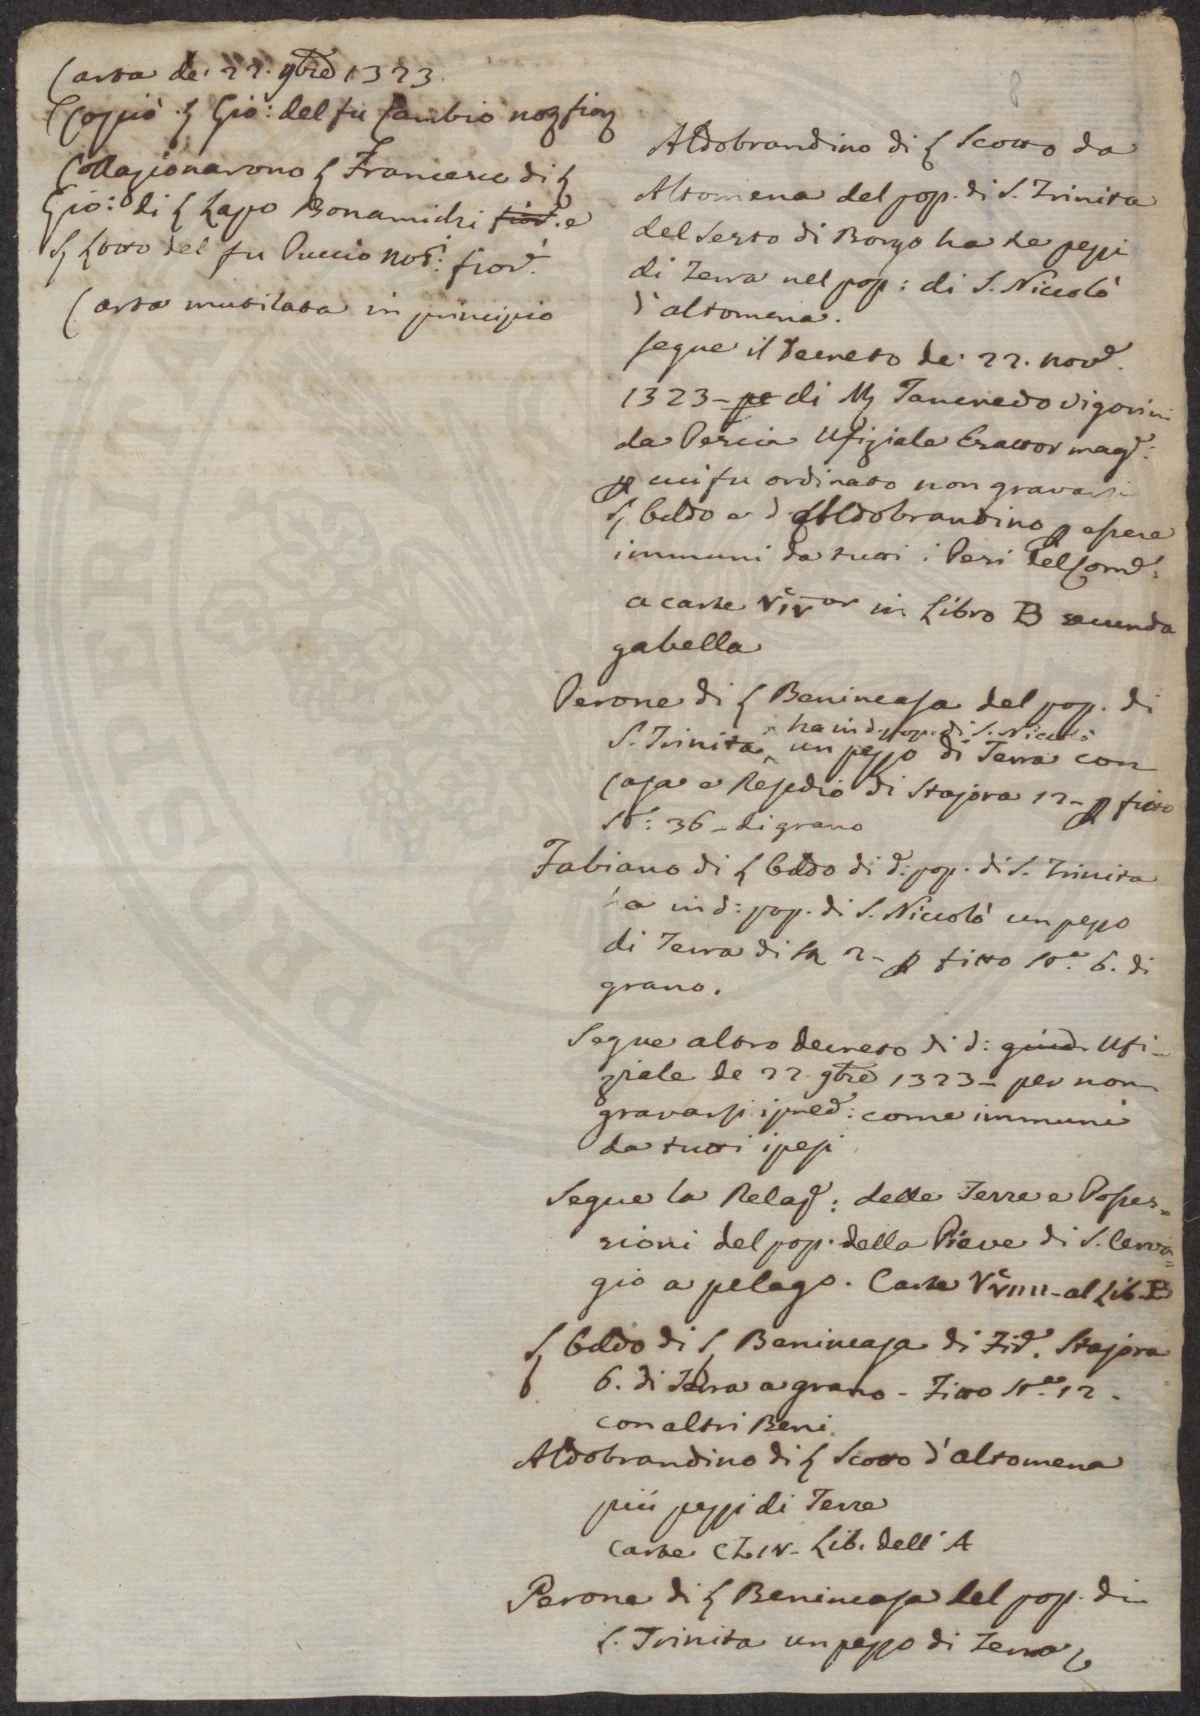 Carta de' 22. 9bre 1323.
Copiò S Gio: del fu Cambio no fior
Collazionarono S Francesco di S
Gio: di S Lapo Bonamichi fior. e
S Lotto del fu Puccio not: fior:
Carta mutilata in principio
8
Aldobrandino di S Scotto da
Altomena del pop. di S. Trinita
del Sesto di Borgo ha te pezzi
di Terra nel pop: di S. Niccolò
d'altomena.
segue il Decreto de' 22. nov.
1323 – pe di M Tancredo Vigorini
da Pescia Ufiziale Exattor mag:
p cui fu ordinato non gravarsi
S Geldo e d. Aldobrandino p essere
immuni da tutti i Pesi del Com:
a carte in Libro B secunda
gabella
Perone di S Benincasa del pop. di
ha in d. pop. di S. Niccolò
S. Trinita un pezzo di Terra con
Casa e Resedio di Stajora 12 – p fitto
St: 36 – di grano
Fabiano di S Geldo di d: pop. di S. Trinita
ha in d: pop. di S. Niccolò un pezzo
di Terra di 2 – p fitto St. 6. di
grano.
Segue altro decreto di d: giud. Ufi-
ziale de 22 9bre 1323 – per non
gravarsi i pred: come immuni
da tutti i pesi
Segue la Relaz: delle Terre e Posses=
sioni del pop. della Pieve di S. Gerva=
gio a pelago. Carte – al Lib. B
S Geldo di S Benincasa di Stajora
6. di Terra a grano – Fitto St. 12 –
con altri Beni.
Aldobrandino di S Scotto d'altomena
più pezzi di Terre
Carte CLIV – Lib. dell' A
Perone di S Benincasa del pop. di
S. Trinita un pezzo di Terra